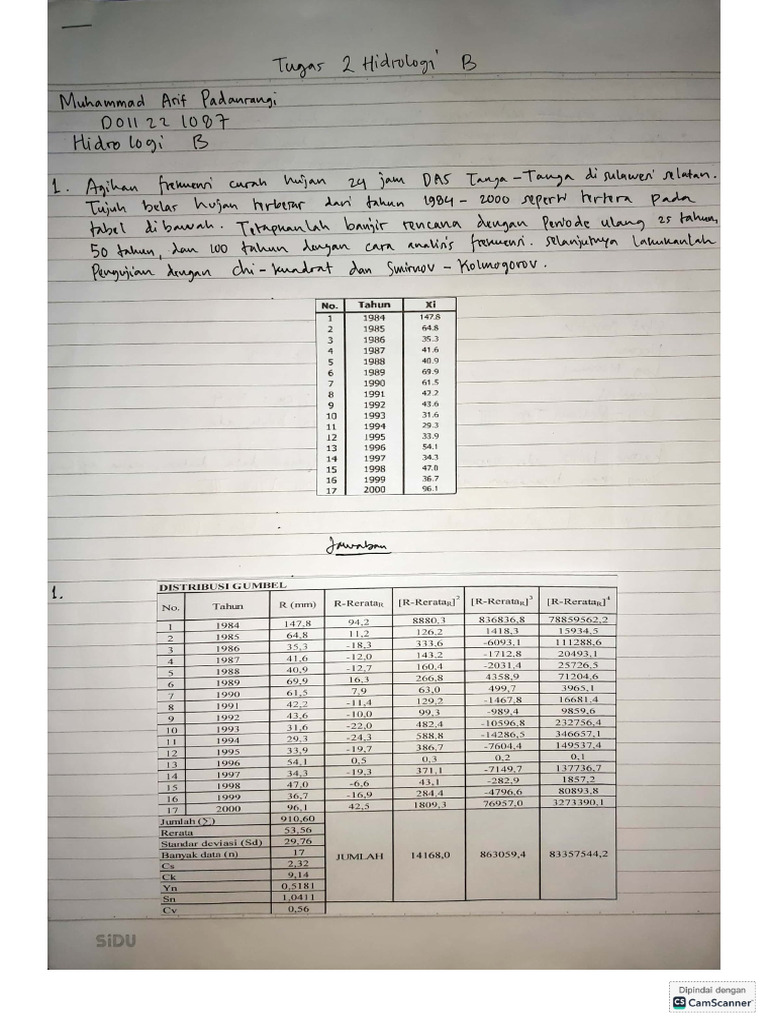 Tugas 2 Hidrologi B
Muhammad Arif Padanrangi
D011 22 1087
Hidrologi B
1. Agihan frekuensi curah hujan 24 jam DAS Tanga-Tanga di sulawesi selatan.
Tujuh belas hujan terbesar dari tahun 1984 - 2000 seperti tertera pada
tabel dibawah. Tetapkanlah banjir rencana dengan Periode ulang 25 tahun,
50 tahun, dan 100 tahun dengan cara analisis frekuensi. selanjutnya Lakukanlah
Pengujian dengan chi-kuadrat dan Smirnov - Kolmogorov.
No. Tahun Xi
1 1984 147.8
2 1985 64.8
3 1986 35.3
4 1987 41.6
5 1988 40.9
6 1989 69.9
7 1990 61.5
8 1991 42.2
9 1992 43.6
10 1993 31.6
11 1994 29.3
12 1995 33.9
13 1996 54.1
14 1997 34.3
15 1998 47.0
16 1999 36.7
17 2000 96.1
Jawaban
1.
DISTRIBUSI GUMBEL
No. Tahun R (mm) R-Rerata_R [R-Rerata_R]² [R-Rerata_R]³ [R-Rerata_R]⁴
1 1984 147,8 94,2 8880,3 836836,8 78859562,2
2 1985 64,8 11,2 126,2 1418,3 15934,5
3 1986 35,3 -18,3 333,6 -6093,1 111288,6
4 1987 41,6 -12,0 143,2 -1712,8 20493,1
5 1988 40,9 -12,7 160,4 -2031,4 25726,5
6 1989 69,9 16,3 266,8 4358,9 71204,6
7 1990 61,5 7,9 63,0 499,7 3965,1
8 1991 42,2 -11,4 129,2 -1467,8 16681,4
9 1992 43,6 -10,0 99,3 -989,4 9859,6
10 1993 31,6 -22,0 482,4 -10596,8 232756,4
11 1994 29,3 -24,3 588,8 -14286,5 346657,1
12 1995 33,9 -19,7 386,7 -7604,4 149537,4
13 1996 54,1 0,5 0,3 0,2 0,1
14 1997 34,3 -19,3 371,1 -7149,7 137736,7
15 1998 47,0 -6,6 43,1 -282,9 1857,2
16 1999 36,7 -16,9 284,4 -4796,6 80893,8
17 2000 96,1 42,5 1809,3 76957,0 3273390,1
Jumlah (∑) 910,60
Rerata 53,56
Standar deviasi (Sd) 29,76
Banyak data (n) 17 JUMLAH 14168,0 863059,4 83357544,2
Cs 2,32
Ck 9,14
Yn 0,5181
Sn 1,0411
Cv 0,56
SiDU
Dipindai dengan
CS CamScanner